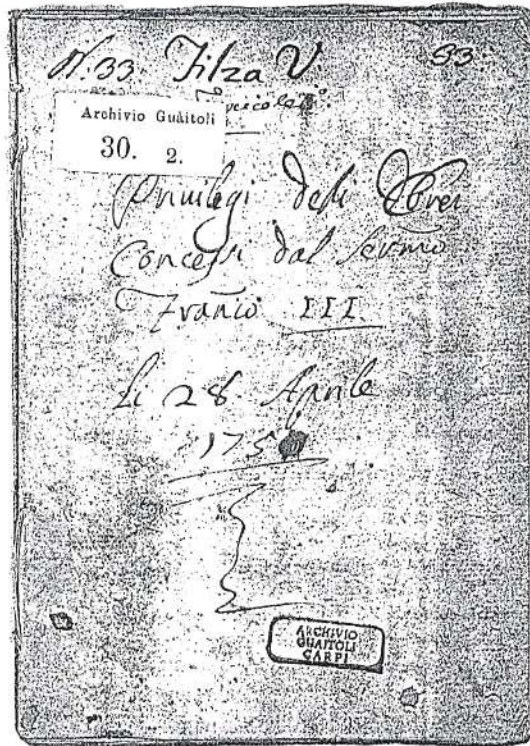 N. 33. Filza V. 33.
Archivio Guaitoli
30. 2.
Privilegi delli Ebrei
Concessi dal Sermo
Franco III
Li 28 Aprile
175
ARCHIVIO
GUAITOLI
CARPI